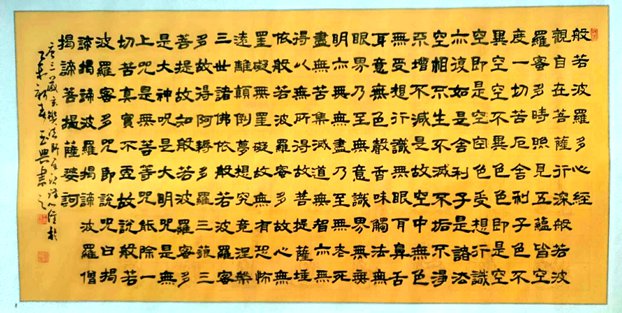 般若波羅蜜多心經
觀自在菩薩行深般若波
羅蜜多時照見五蘊皆空
度一切苦厄舍利子色不
異空空不異色色即是空
空即是色受想行識
亦復如是舍利子是諸法
空相不生不滅不垢不淨
不增不減是故空中無色
無受想行識無眼耳鼻舌
身意無色聲香味觸法無
眼界乃至無意識界無無
明亦無無明盡乃至無老死
盡無苦集滅道無智亦無
得以無所得故菩提薩埵
依般若波羅蜜多故心無
罣礙無罣礙故無有恐怖
遠離顛倒夢想究竟涅槃
三世諸佛依般若波羅蜜
多故得阿耨多羅三藐三
菩提故知般若波羅蜜多
是大神咒是大明咒是無
上咒是無等等咒能除一
切苦真實不虛故說般若
波羅蜜多咒即說咒曰揭
諦揭諦波羅揭諦波羅僧
揭諦菩提薩婆訶